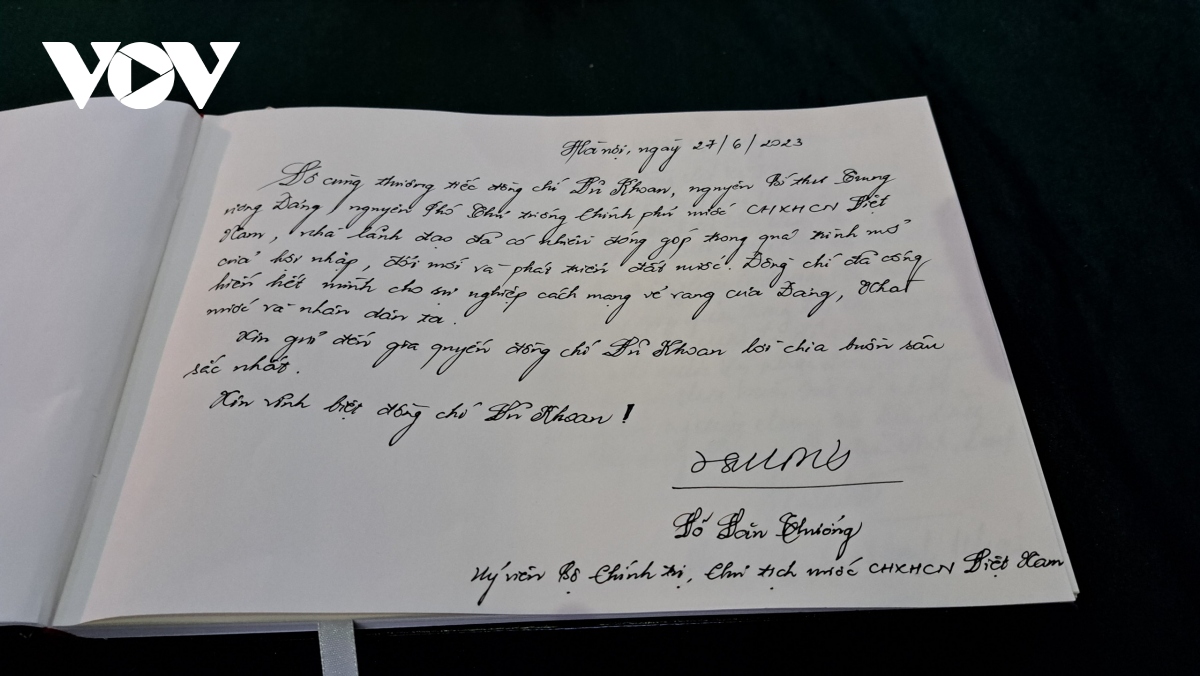 VOV
Hà nội, ngày 27/6/2023
Vô cùng thương tiếc đồng chí Vũ Khoan, nguyên Bí thư Trung
ương Đảng, nguyên Phó Thủ tướng Chính phủ nước CHXHCN Việt
Nam, nhà lãnh đạo đã có nhiều đóng góp trong quá trình mở
cửa hội nhập, đổi mới và phát triển đất nước. Đồng chí đã cống
hiến hết mình cho sự nghiệp cách mạng vẻ vang của Đảng, Nhà
nước và nhân dân ta.
Xin gửi đến gia quyến đồng chí Vũ Khoan lời chia buồn sâu
sắc nhất.
Xin vĩnh biệt đồng chí Vũ Khoan!
Võ Văn Thưởng
Uỷ viên Bộ Chính trị, Chủ tịch nước CHXHCN Việt Nam